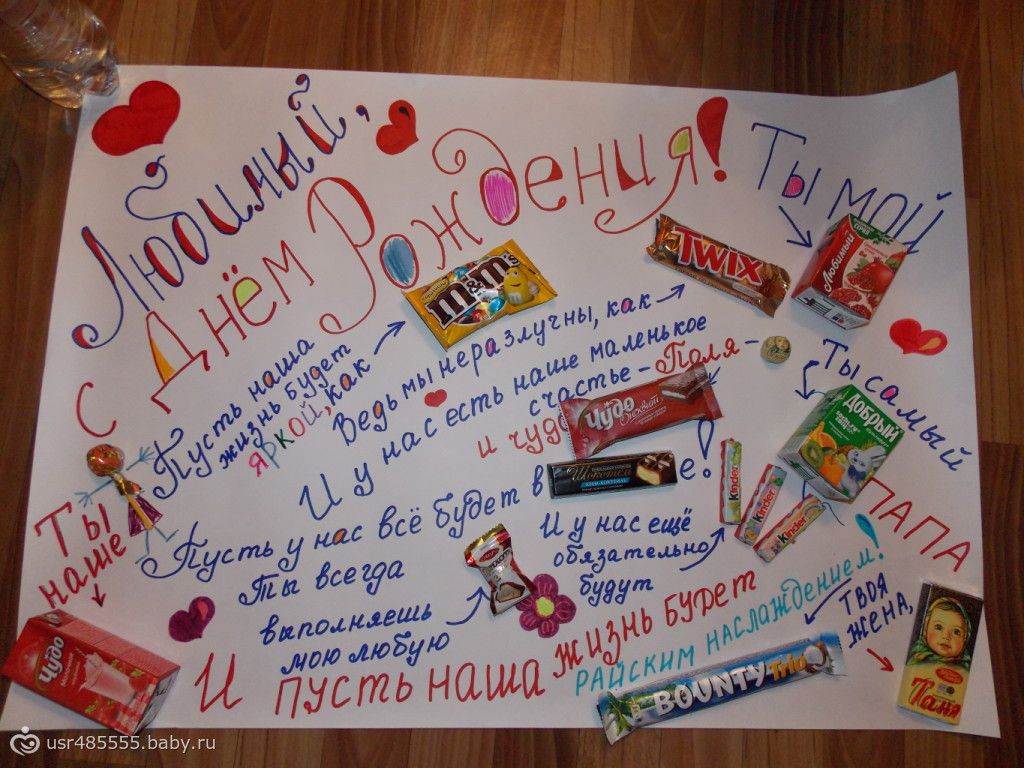 Любимый,
С Днём Рождения!
Ты мой
Любимый
Пусть наша
жизнь будет
яркой, как
m&m's
Ведь мы неразлучны, как
TWIX
И у нас есть наше маленькое
счастье - Поля -
и чудо
Чудо
Ты самый
Добрый
ПАПА
Пусть у нас всё будет в
Шокотел
е!
Ты наше
Чудо
Ты всегда
выполняешь
мою любую
И у нас ещё
обязательно
будут
kinder
kinder
kinder
И пусть наша жизнь будет
райским наслаждением!
BOUNTY Trio
Твоя
жена,
Таня
usr485555.baby.ru